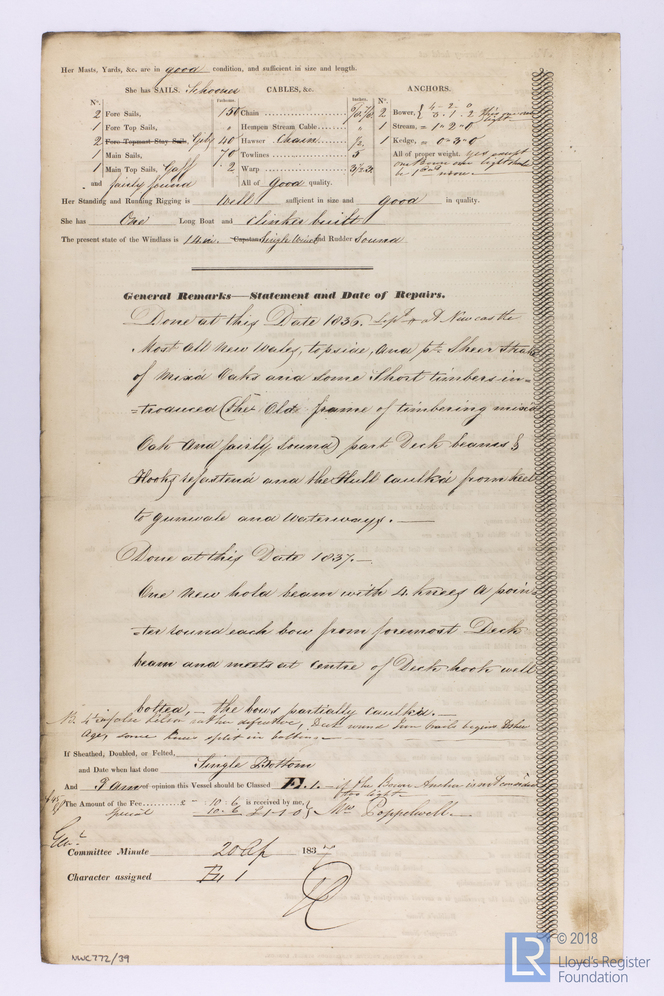 Her Masts, Yards, &c. are in good condition, and sufficient in size and length.
She has SAILS. Schooner CABLES, &c. ANCHORS.
N°. Fathoms. Inches. N°.
2 Fore Sails, 150 Chain 2 Bower, 4-2-0 3-1-2 This one light
1 Fore Top Sails, " Hempen Stream Cable " 1 Stream, = 1-2-0
2 Fore Topmast Stay Sails, Gibs 40 Hawser Chain 1/2 1 Kedge, = 0-3-0
1 Main Sails, 70 Towlines 5 All of proper weight. yes except
1 Main Top Sails, Gaff 2 Warp one Bower one light
and fairly found All of Good quality.
Her Standing and Running Rigging is Well sufficient in size and good in quality.
She has One Long Boat and clinker built
The present state of the Windlass is 14 in. Capstan Single Winch and Rudder Sound
General Remarks—Statement and Date of Repairs.
Done at this Date 1836. Sept at Newcastle
Most all New Wales, topside, and pt Sheer Strake
of Mixd Oaks and some Short timbers in=
=troduced (the Old frame of timbering mixd
Oak and fairly sound) part Deck beams &
Hooks refastend and the Hull caulkd from keel
to gunwale and Waterways. —
Done at this Date 1837. —
One New hold beam with 4 knees A poin=
=ter round each bow from foremost Deck
beam and meets at centre of Deck hook well
bolted, — the bows partially caulkd. —
NB. false kelson rather defective, Deck worn
Age, some knees split in bolting
If Sheathed, Doubled, or Felted,
and Date when last done Single Bottom
And I am of opinion this Vessel should be Classed Æ.1. — if the Bower Anchor is not considered
too light. —
The Amount of the Fee £ " 10. 6 is received by me,
Special 10. 6 £1-1-0 Wm Poppelwell. —
Committee Minute 20 Ap 1837
Character assigned Æ 1
NWC772/39
LR
© 2018
Lloyd's Register
Foundation